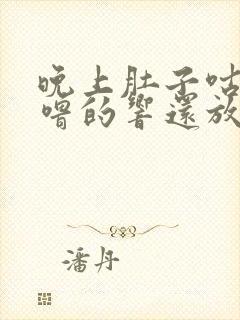 晚上肚子咕
嚕的響還放
潘丹